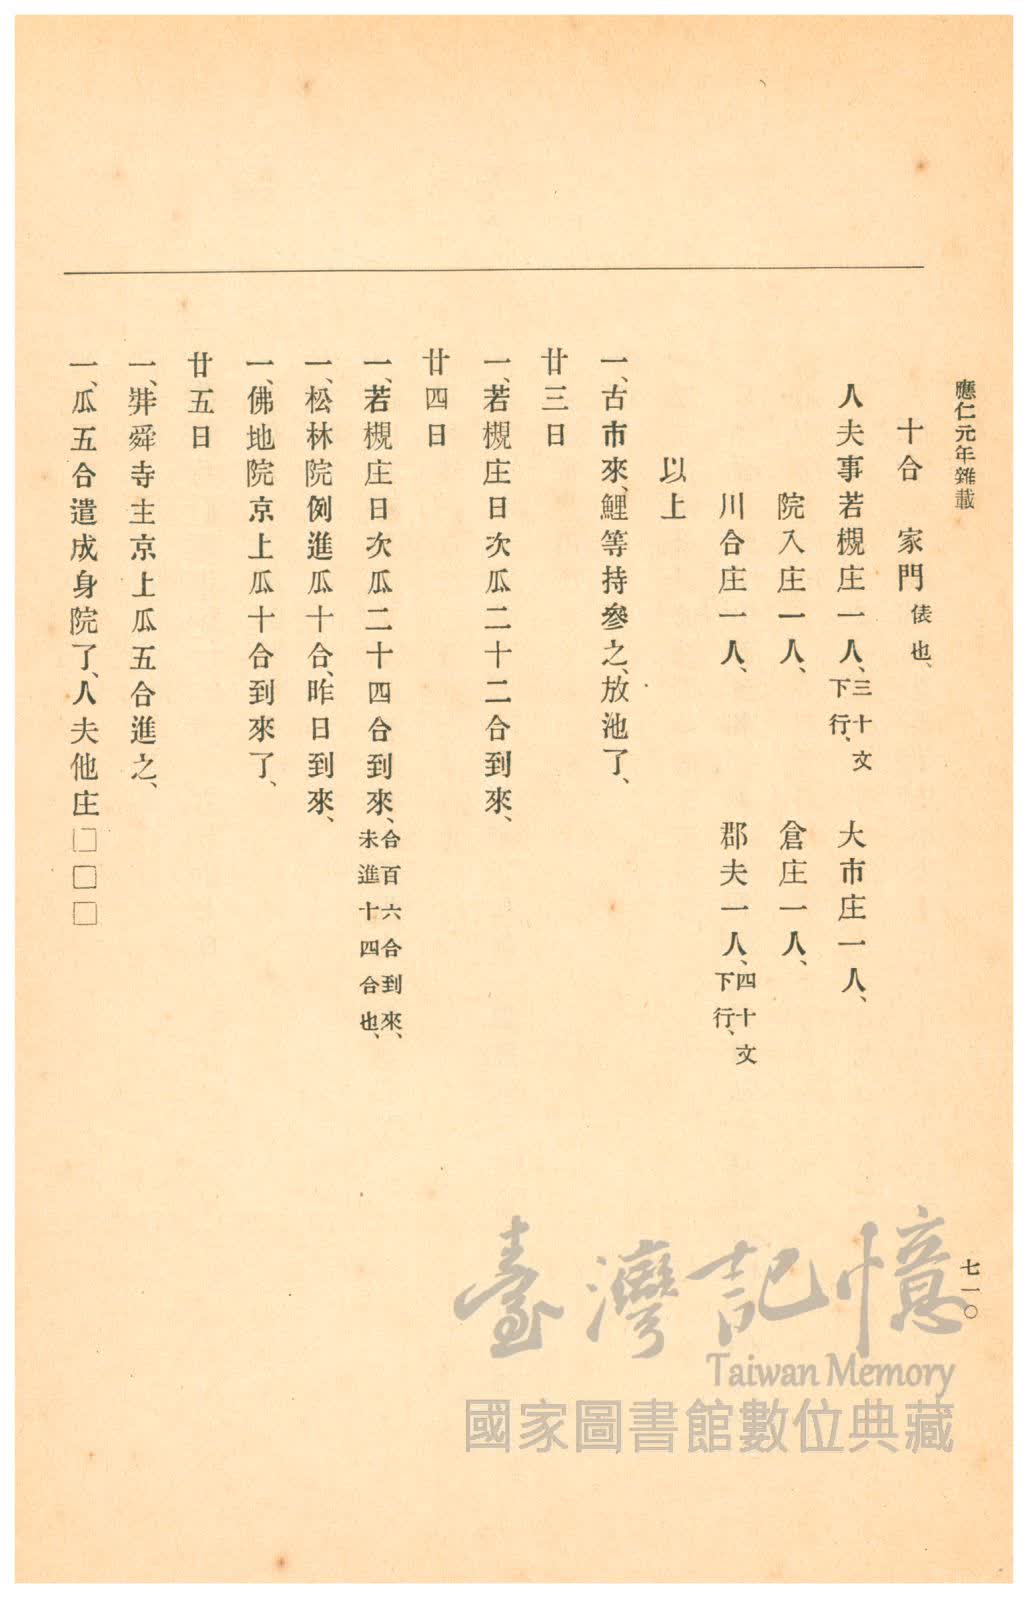 應仁元年雜載
七一〇
十合 家門俵也、
人夫事若槻庄一人、三十文下行、 大市庄一人、
院入庄一人、 倉庄一人、
川合庄一人、 郡夫一人、四十文下行、
以上
一、古市來、鯉等持參之、放池了、
廿三日
一、若槻庄日次瓜二十二合到來、
廿四日
一、若槻庄日次瓜二十四合到來、合百六合到來、未進十四合也、
一、松林院例進瓜十合、昨日到來、
一、佛地院京上瓜十合到來了、
廿五日
一、弉舜寺主京上瓜五合進之、
一、瓜五合遣成身院了、人夫他庄□□□
臺灣記憶
Taiwan Memory
國家圖書館數位典藏